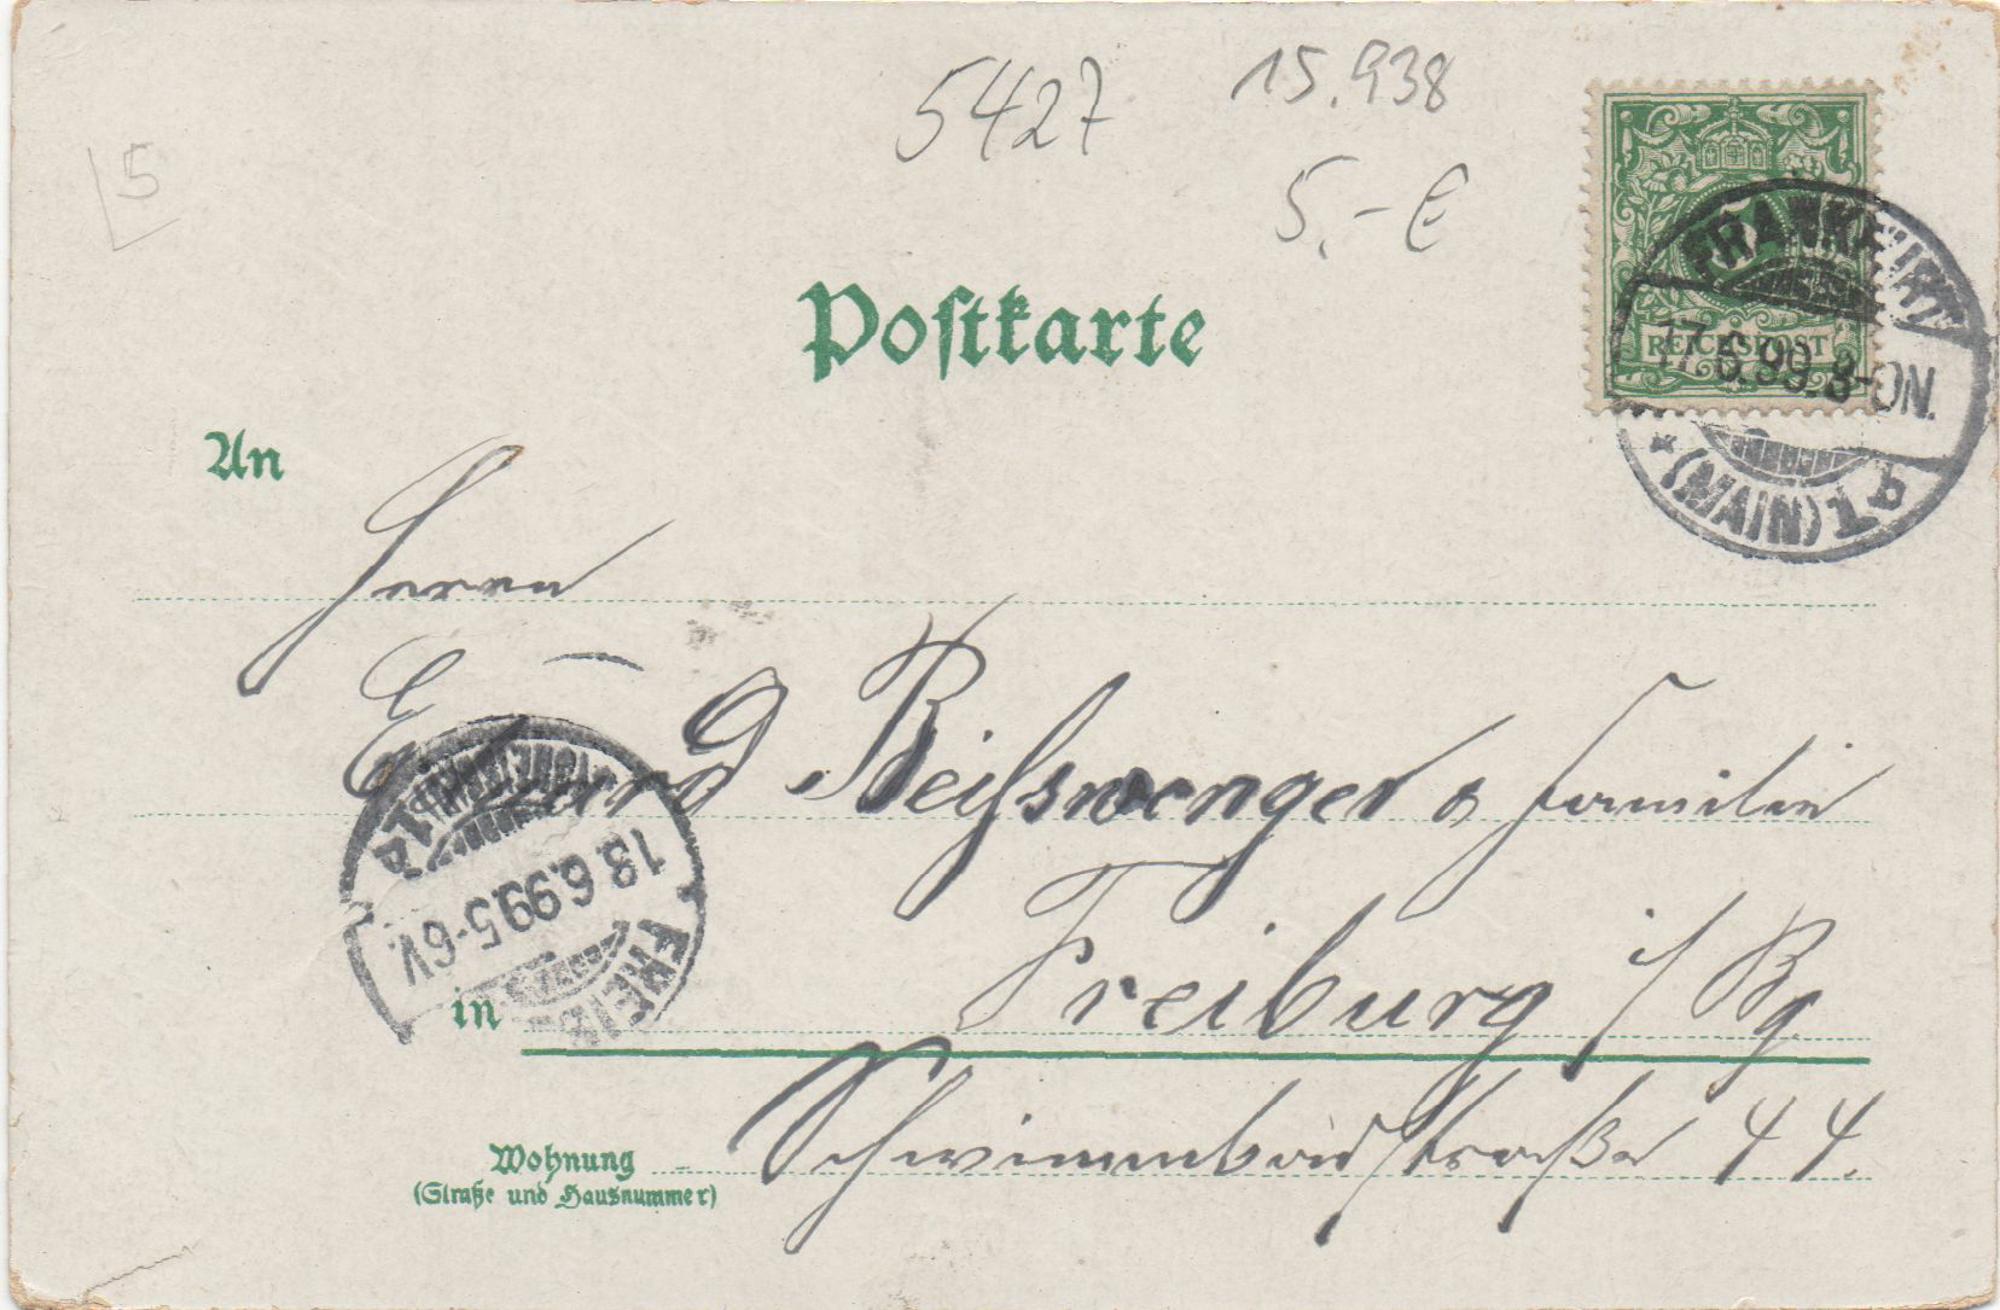 5427
15.938
5
5.-€
Postkarte
REICHSPOST
FRANKFURT
17.6.99.8-9N.
* (MAIN) 1 b
An
Herrn
Eduard Beißwenger & Familie
18.6.99.5-6V.
in Freiburg i/Bg
Wohnung Schwimmbadstraße 44.
(Straße und Hausnummer)